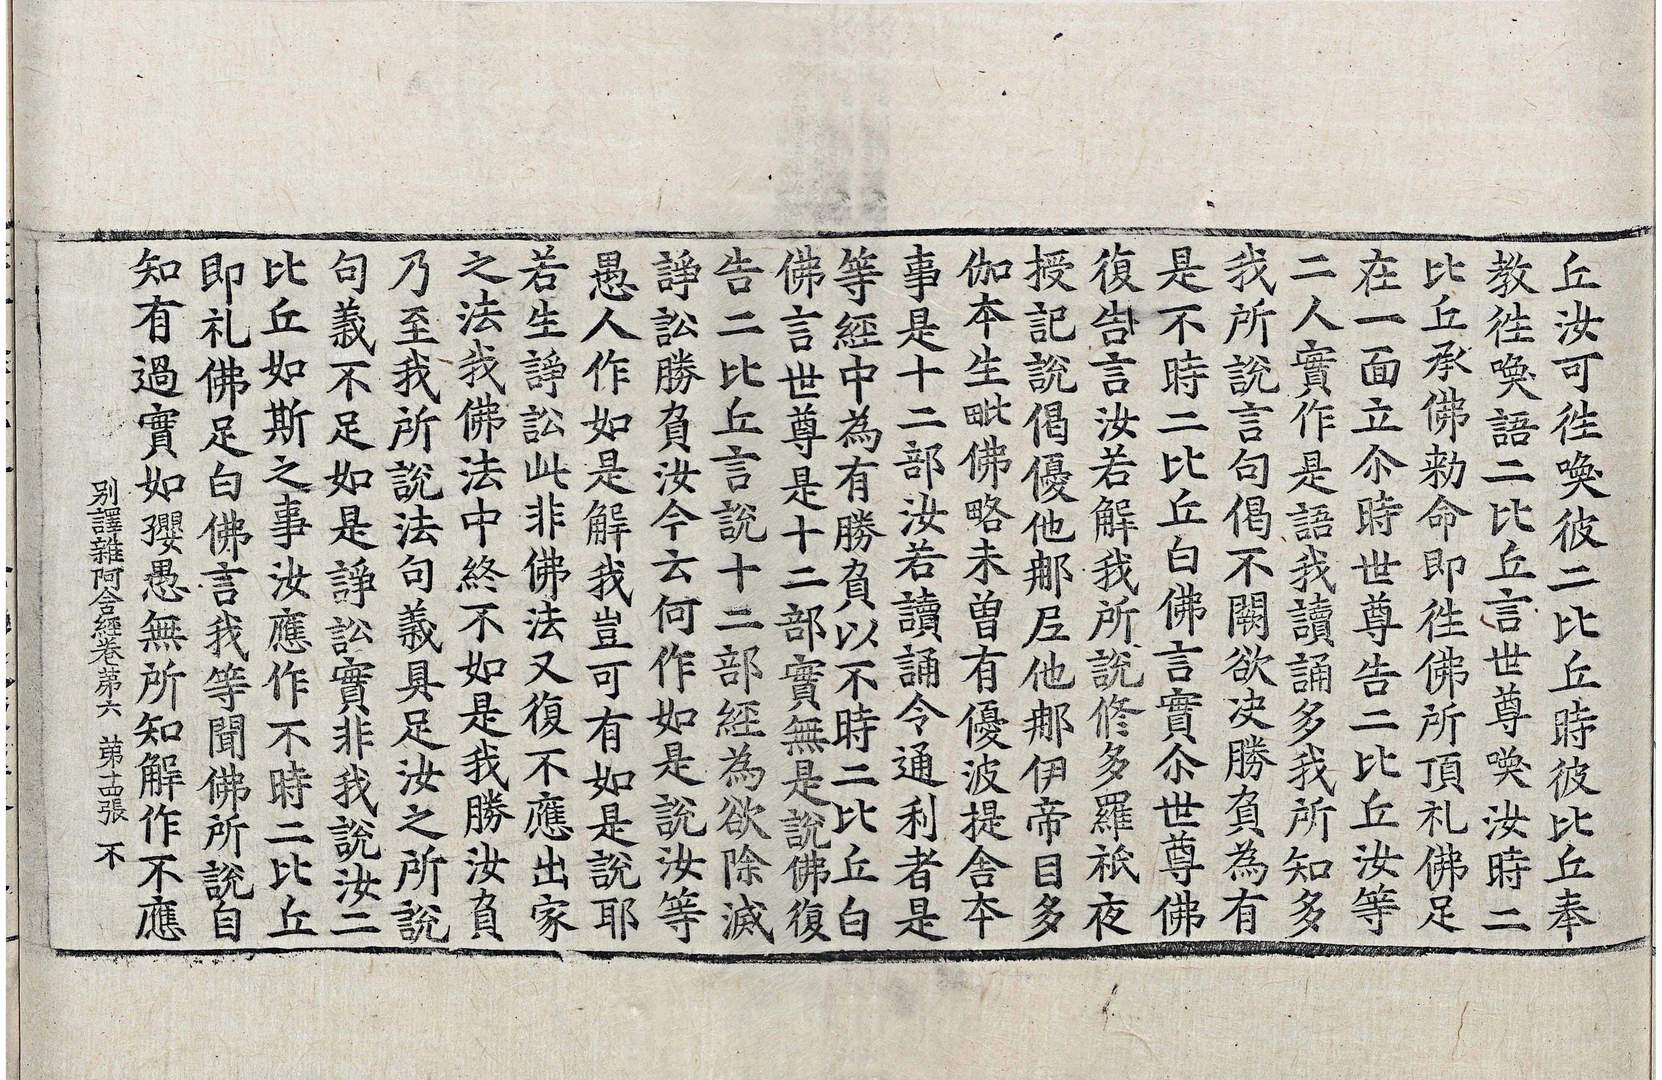 丘汝可徃喚彼二比丘時彼比丘奉
教徃喚語二比丘言世尊喚汝時二
比丘承佛勑命即徃佛所頂礼佛足
在一面立尒時世尊告二比丘汝等
二人實作是語我讀誦多我所知多
我所說言句偈不闕欲决勝負為有
是不時二比丘白佛言實尒世尊佛
復告言汝若解我所說修多羅祇夜
授記說偈優他𨚗尼他𨚗伊帝目多
伽本生毗佛略未曽有優波提舍本
事是十二部汝若讀誦令通利者是
等經中為有勝負以不時二比丘白
佛言世尊是十二部實無是說佛復
告二比丘言說十二部經為欲除滅
諍訟勝負汝今云何作如是說汝等
愚人作如是解我豈可有如是說耶
若生諍訟此非佛法又復不應出家
之法我佛法中終不如是我勝汝負
乃至我所說法句義具足汝之所說
句義不足如是諍訟實非我說汝二
比丘如斯之事汝應作不時二比丘
即礼佛足白佛言我等聞佛所說自
知有過實如孾愚無所知解作不應
别譯雜阿含經卷第六　第十四張　不